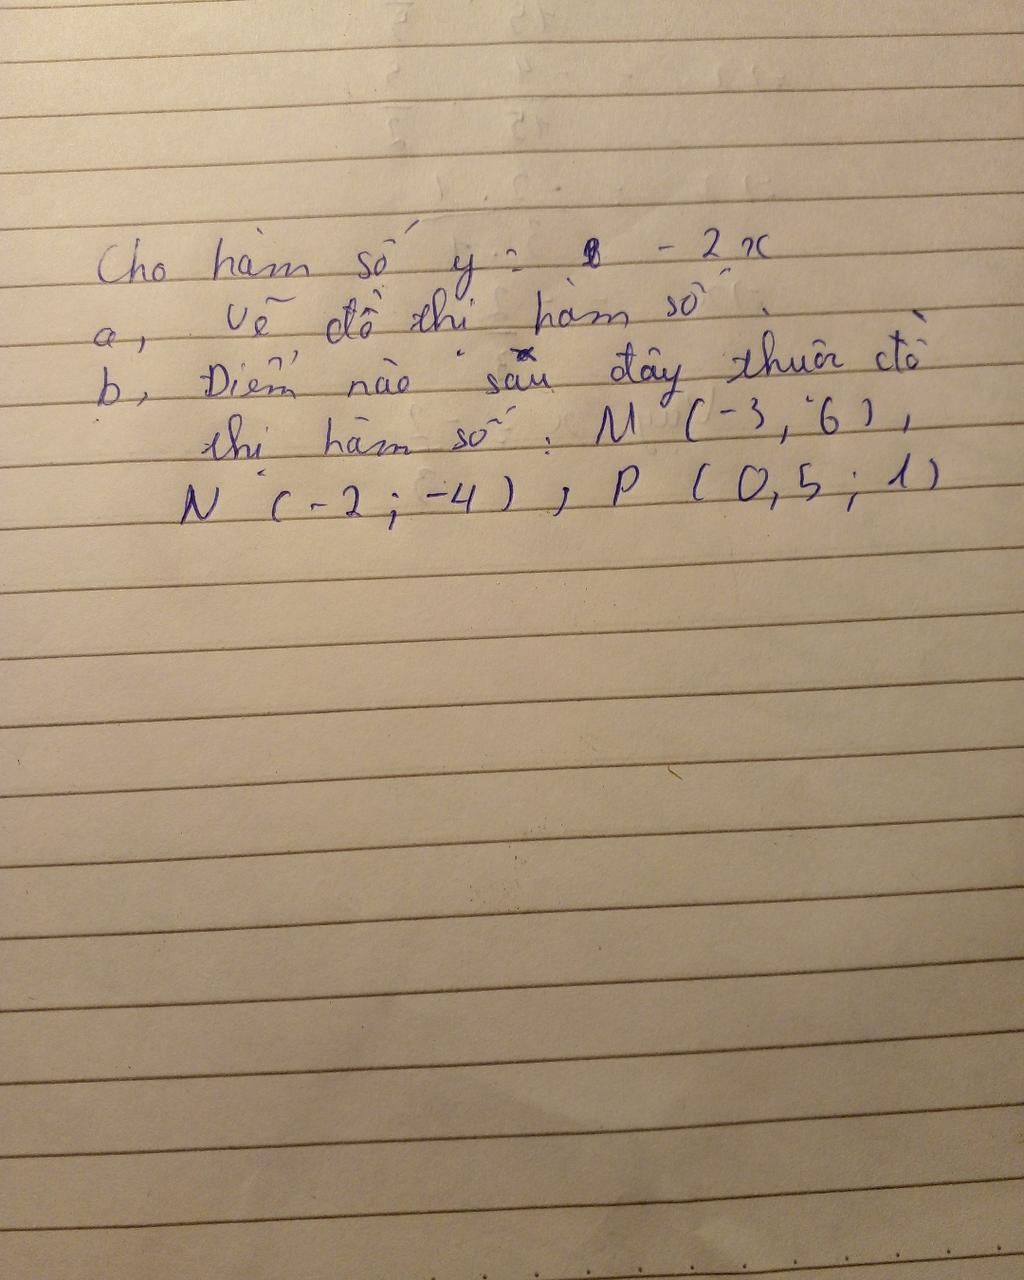 Cho hàm số y = - 2x
a, Vẽ đồ thị hàm số.
b, Điểm nào sau đây thuộc đồ
thị hàm số : M (-3, 6),
N (-2; -4), P (0,5; 1)